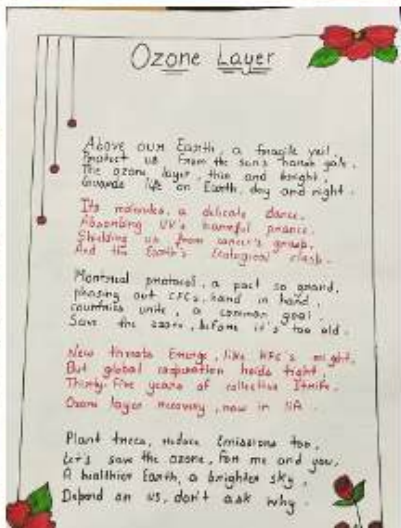 Ozone Layer
Above our Earth, a fragile veil,
Protect us from the sun's harsh gale.
The ozone layer, thin and bright,
Guards life on Earth, day and night.
Its molecules, a delicate dance,
Absorbing UV's harmful prance.
Shielding us from cancer's grasp,
And the Earth's Ecological clasp.
Montreal protocol, a pact so grand,
phasing out CFCs, hand in hand,
countries unite, a common goal,
Save the ozone, before it's too old.
New threats Emerge, like HFC's might,
But global cooperation holds tight,
Thirty-five years of collective
Ozone layer recovery, now in
Plant trees, reduce Emissions too,
Let's save the ozone, for me and you,
A healthier Earth, a brighter sky,
Depend on us, don't ask why.